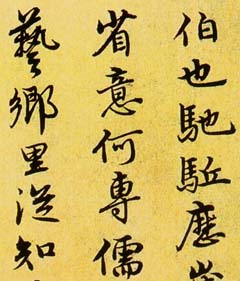 伯也馳駈歷
省意何專儒
藝鄉里從知